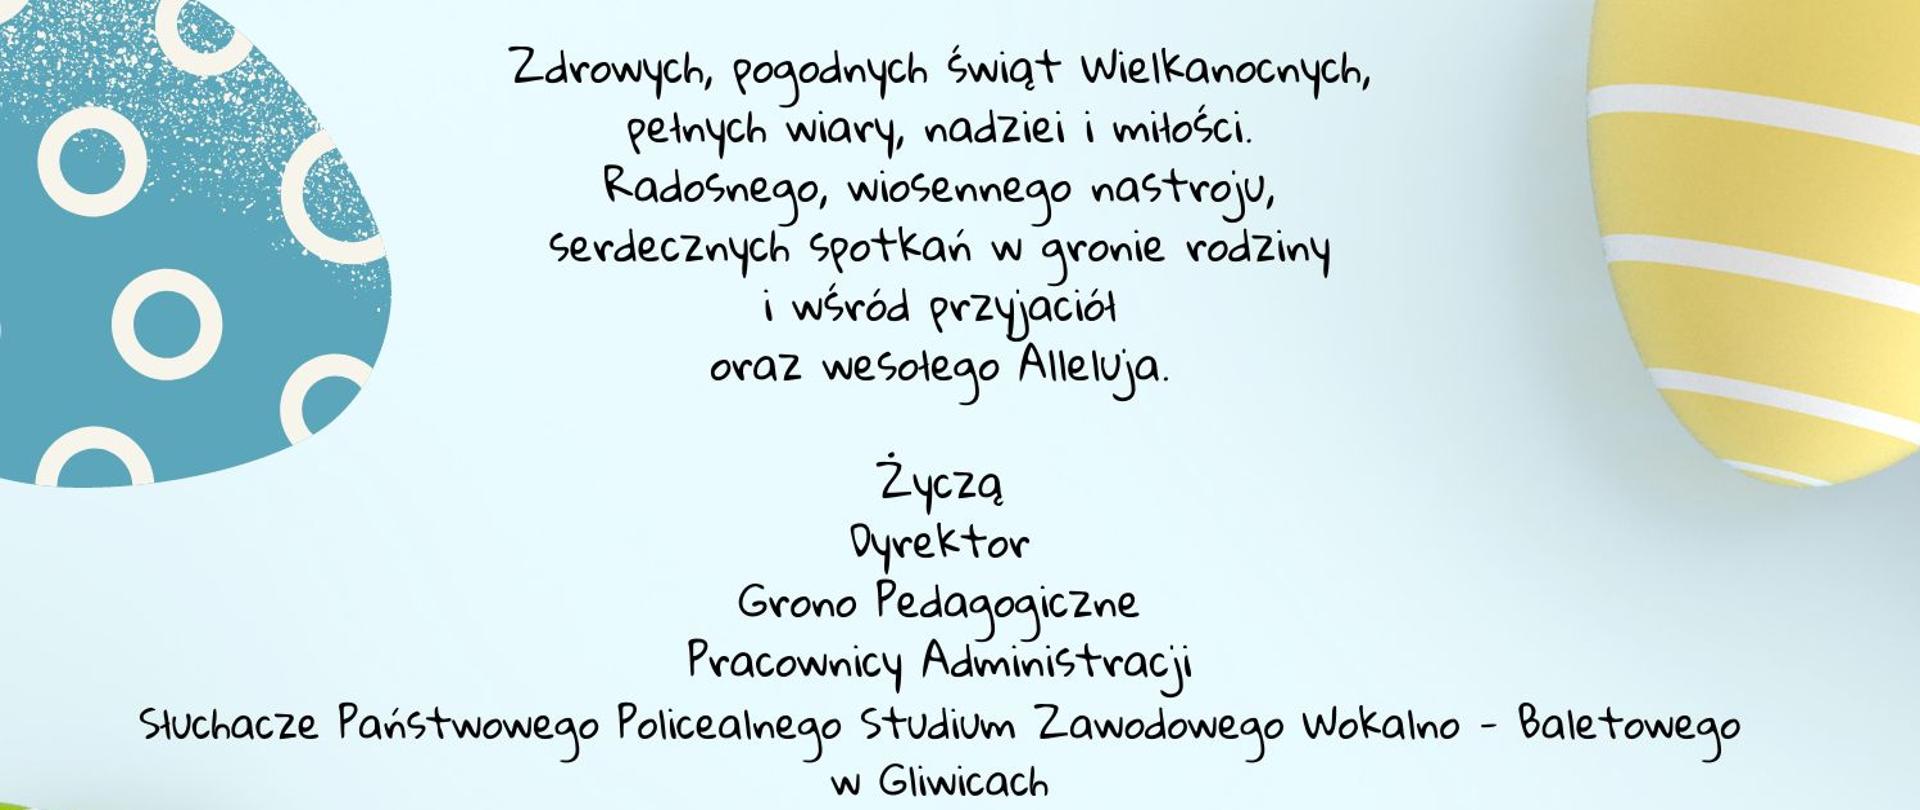 Zdrowych, pogodnych świąt Wielkanocnych,
pełnych wiary, nadziei i miłości.
Radosnego, wiosennego nastroju,
serdecznych spotkań w gronie rodziny
i wśród przyjaciół
oraz wesołego Alleluja.
Życzą
Dyrektor
Grono Pedagogiczne
Pracownicy Administracji
Słuchacze Państwowego Policealnego Studium Zawodowego Wokalno - Baletowego
w Gliwicach